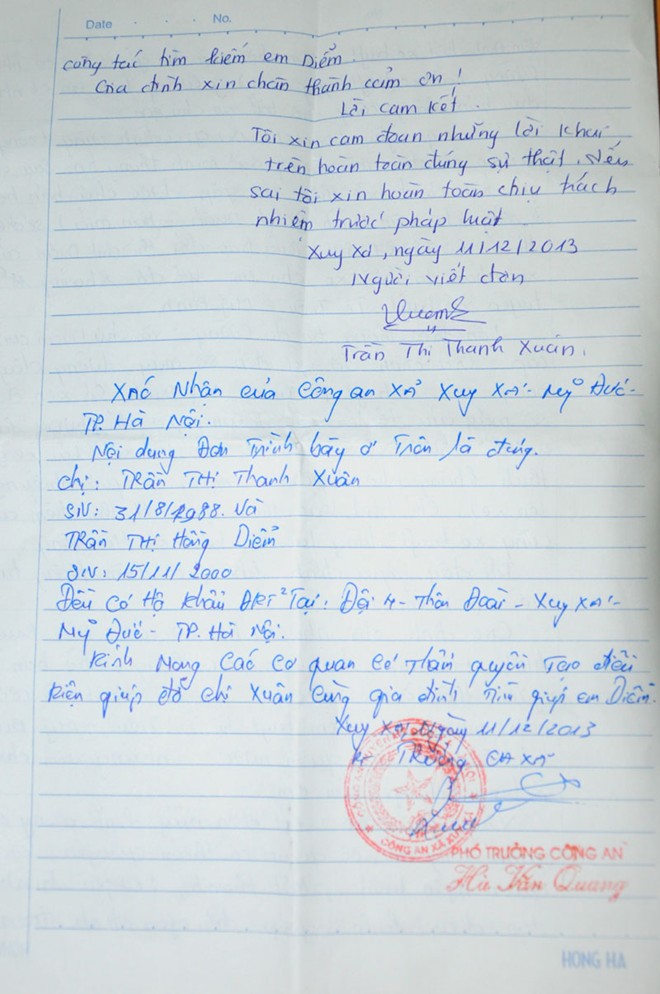 Date No.
công tác tìm kiếm em Diểm.
Gia đình xin chân thành cảm ơn!
Lời cam kết.
Tôi xin cam đoan những lời khai
trên hoàn toàn đúng sự thật. Nếu
sai tôi xin hoàn toàn chịu trách
nhiệm trước pháp luật.
Xuy Xá, ngày 11/12/2013
Người viết đơn
Trần Thị Thanh Xuân.
Xác Nhận của Công an xã Xuy Xá - Mỹ Đức -
TP. Hà Nội.
Nội dung Đơn Trình bày ở Trên là đúng.
Chị: TRẦN THỊ Thanh Xuân
SN: 31/8/1988. Và
TRẦN THị Hồng Diểm
SN: 15/11/2000
Đều có Hộ khẩu ĐKTT Tại: Đội 4 - Thôn Đoài - Xuy Xá -
Mỹ Đức - TP. Hà Nội.
Kính Mong Các Cơ quan Có Thẩm quyền Tạo điều
kiện giúp đỡ chị Xuân Cùng gia đình Tìm giúp em Diểm.
Xuy Xá, Ngày 11/12/2013
Trưởng CA XÃ
CÔNG AN XÃ
PHÓ TRƯỞNG CÔNG AN
Hà Văn Quang
HONG HA